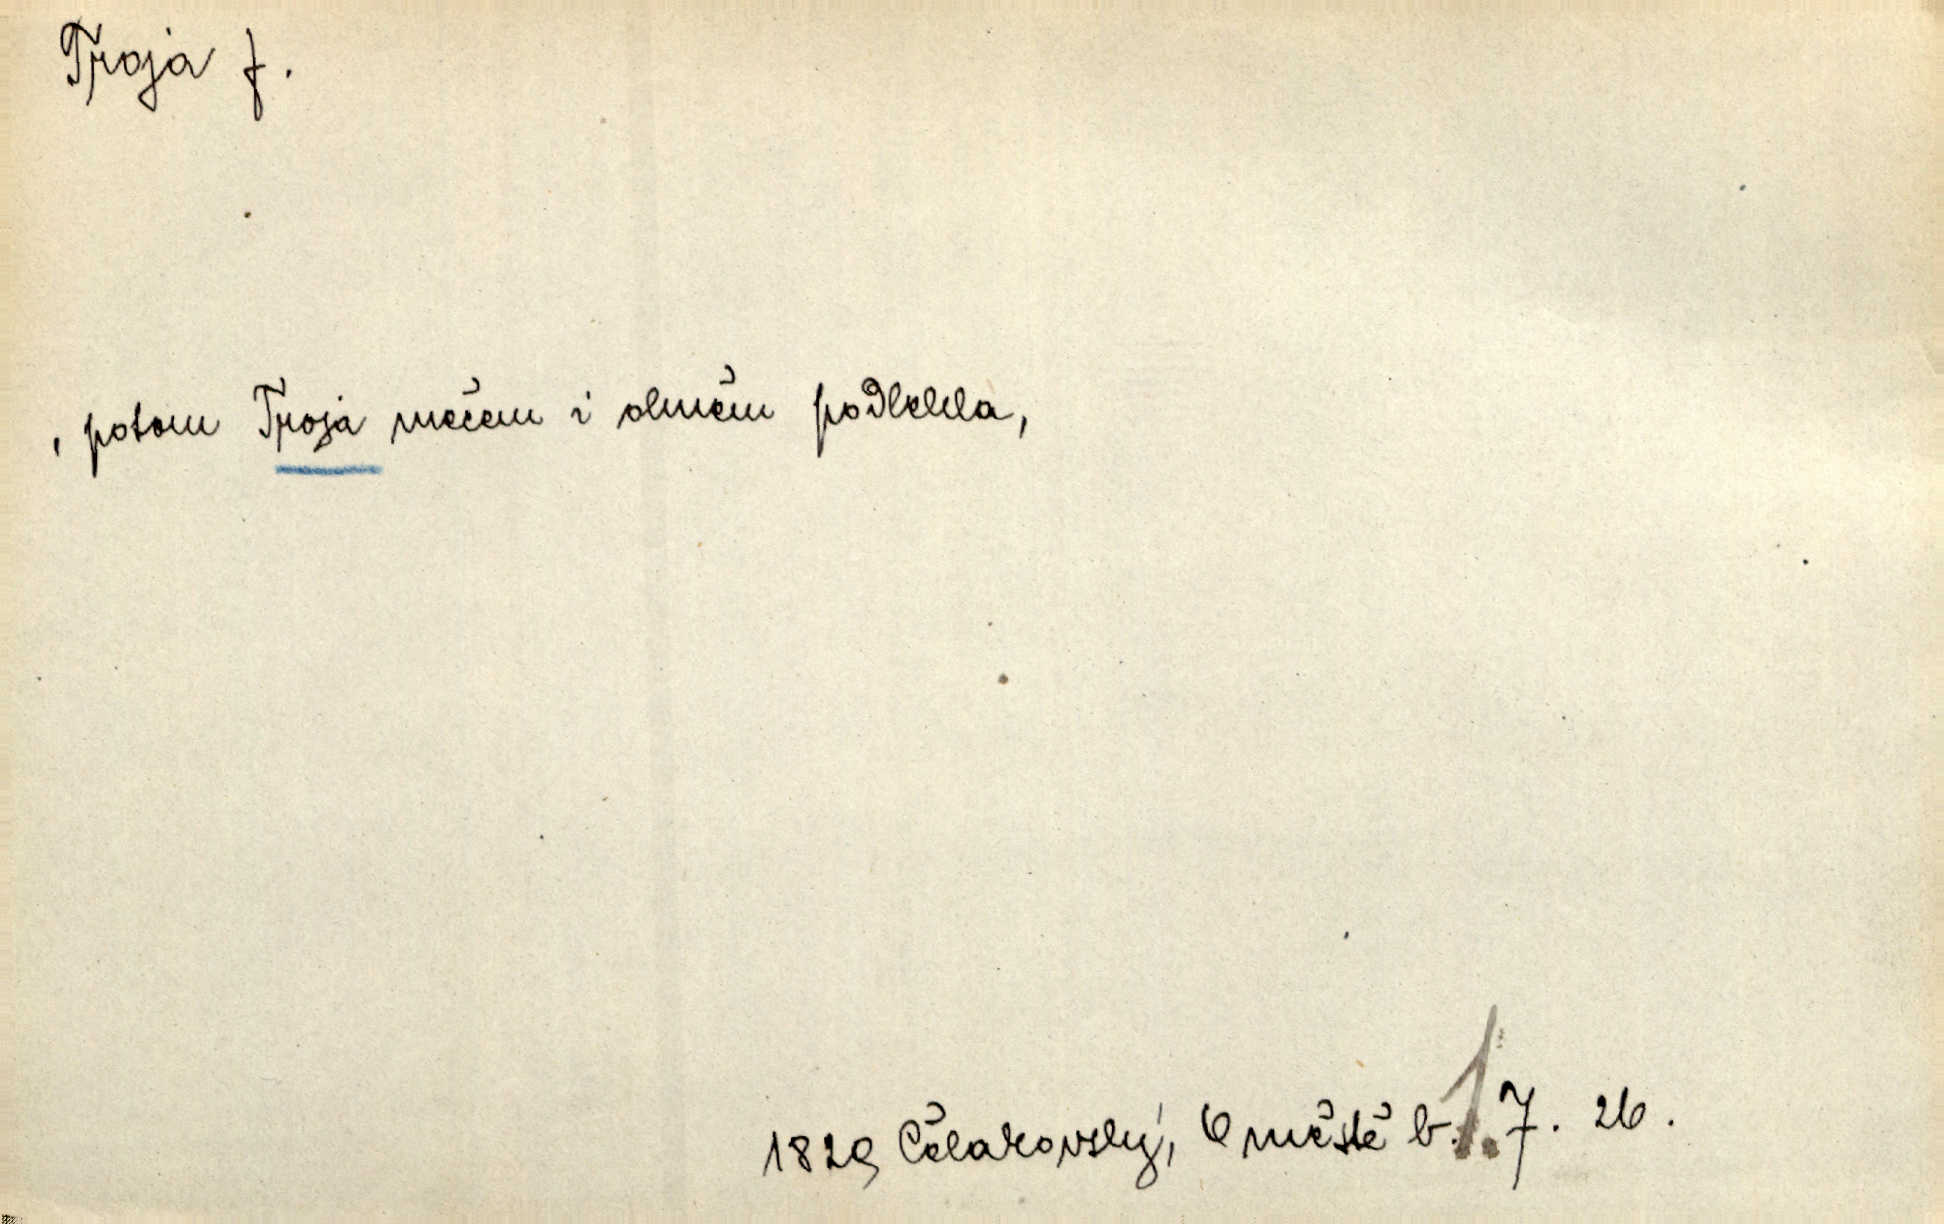 Troja f.
, potom Troja mečem i ohněm podlehla,
1829 Čelakovský, O městě b. 1. 7. 26.